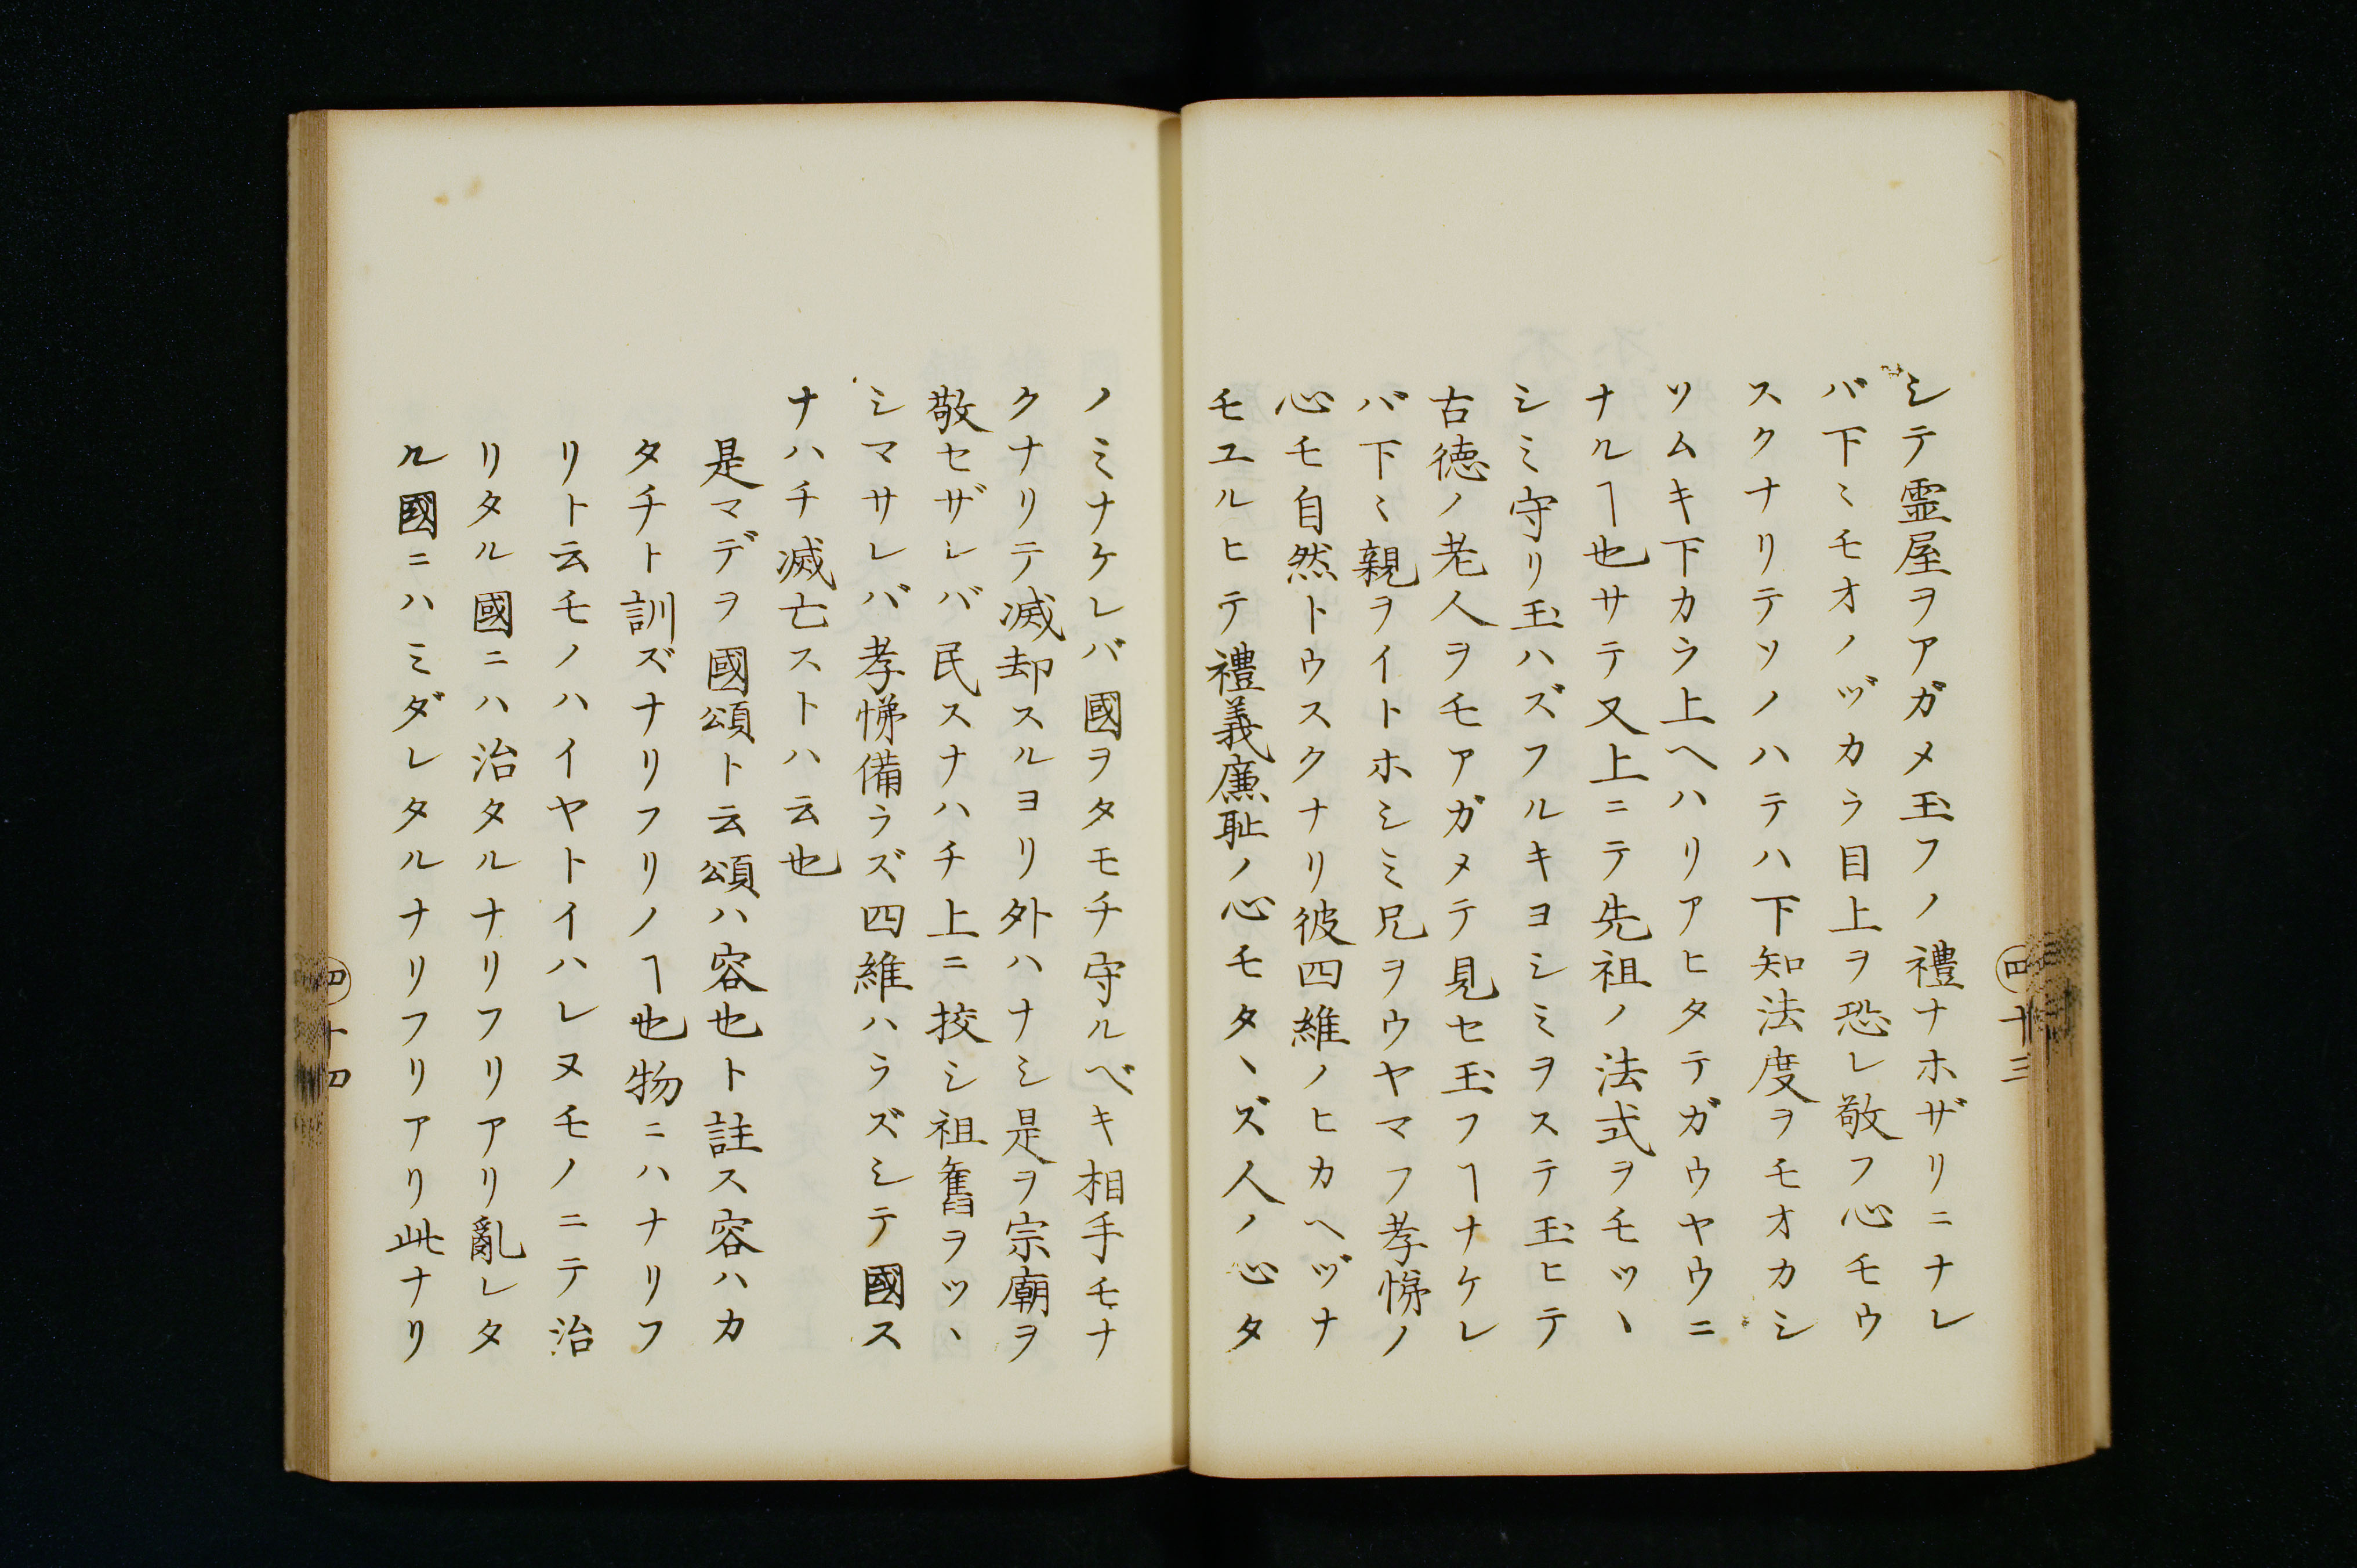 シテ霊屋ヲアガメ玉フノ禮ナホザリニナレ
バ下ミモオノヅカラ目上ヲ恐レ敬フ心モウ
スクナリテツノハテハ下知法度ヲモオカシ
ソムキ下カラ上ヘハリアヒタテガウヤウニ
ナルヿ也サテ又上ニテ先祖ノ法式ヲモツヽ
シミ守リ玉ハズフルキヨシミヲステ玉ヒテ
古徳ノ老人ヲモアガメテ見セ玉フヿナケレ
バ下ミ親ヲイトホシミ兄ヲウヤマフ孝悌ノ
心モ自然トウスクナリ彼四維ノヒカヘヅナ
モユルヒテ禮義廉恥ノ心モタヽズ人ノ心タ
㊃十三
ノミナケレバ國ヲタモチ守ルベキ相手モナ
クナリテ滅却スルヨリ外ハナシ是ヲ宗廟ヲ
敬セザレバ民スナハチ上ニ挍シ祖舊ヲツヽ
シマサレバ孝悌備ラズ四維ハラズシテ國ス
ナハチ滅亡ストハ云也
是マデヲ國頌ト云頌ハ容也ト註ス容ハカ
タチト訓ズナリフリノヿ也物ニハナリフ
リト云モノハイヤトイハレヌモノニテ治
リタル國ニハ治タルナリフリアリ亂レタ
ル國ニハミダレタルナリフリアリ此ナリ
㊃十四